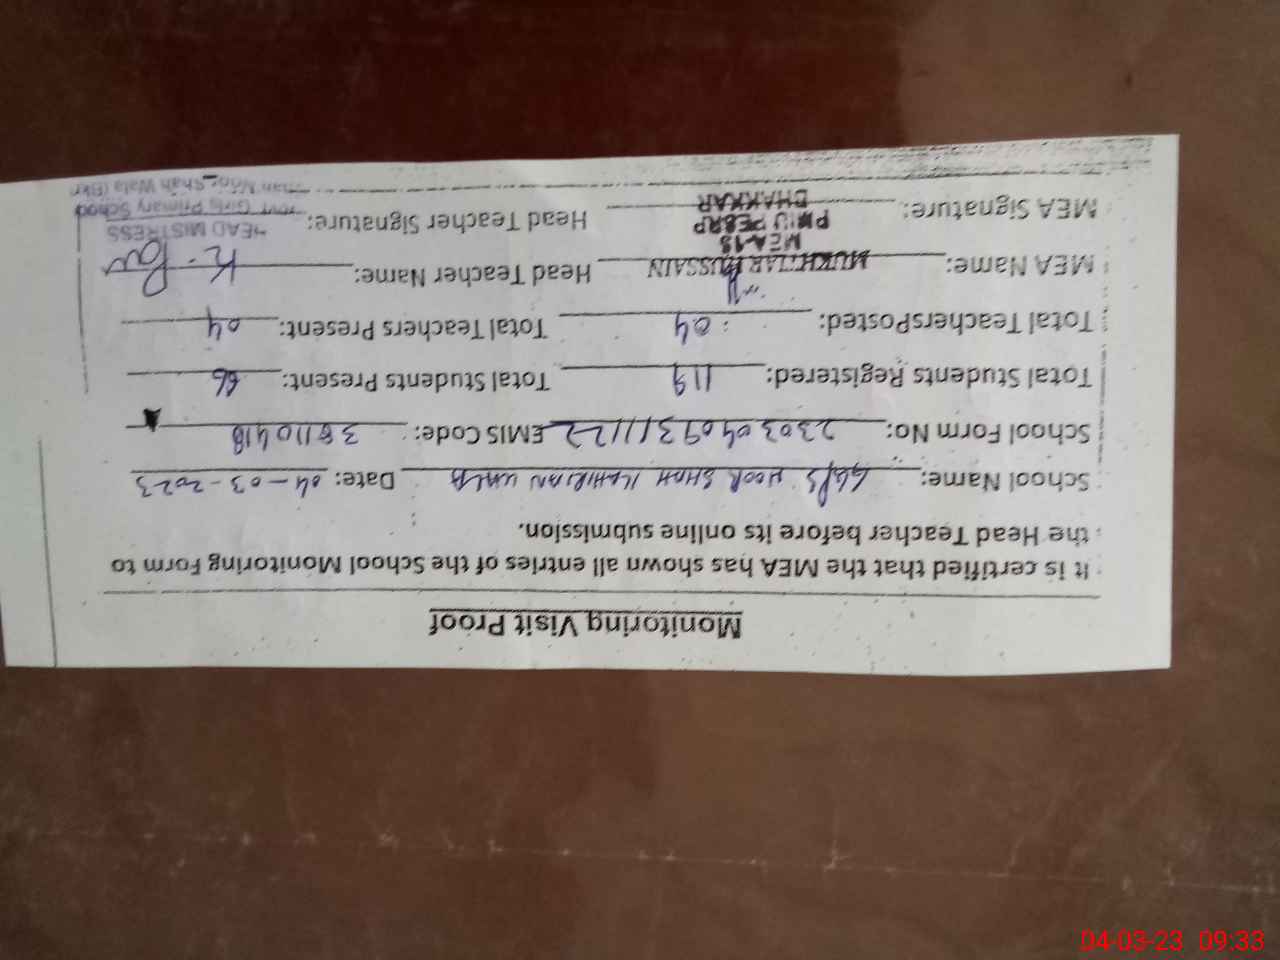 Monitoring Visit Proof
It is certified that the MEA has shown all entries of the School Monitoring Form to
the Head Teacher before its online submission.
School Name: GGPS NOOR SHAH Date: 04-03-2023
School Form No: 23030409311122 EMIS Code: 38110418
Total Students Registered: 119 Total Students Present: 66
Total TeachersPosted: 04 Total Teachers Present: 04
MEA Name: MUKHTIAR HUSSAIN Head Teacher Name:
MEA-15
PMIU PESRP
BHAKKAR
MEA Signature: Head Teacher Signature:
HEAD MISTRESS
Govt Girls Primary School
Shah Wala (Bkr)
04-03-23 09:33